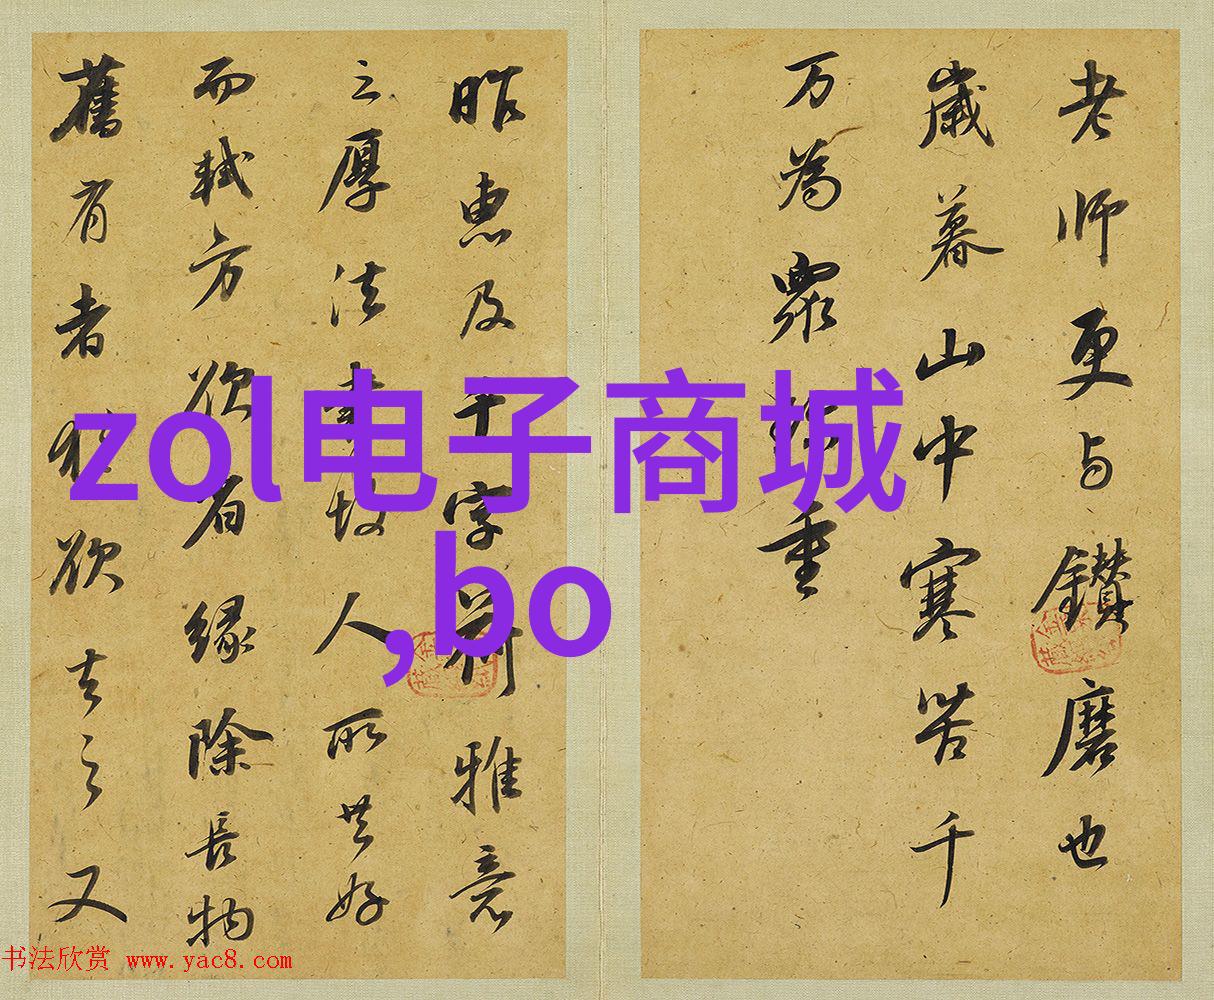 老师更与鑚磨也
歲暮山中寒苦千
万為衆珍重
昨惠及千字荷雅意
之厚法書故人所共好
而軾方欲省緣除長物
舊有者猶欲去之又
zol电子商城
,bo
书法欣赏 www.yac8.com